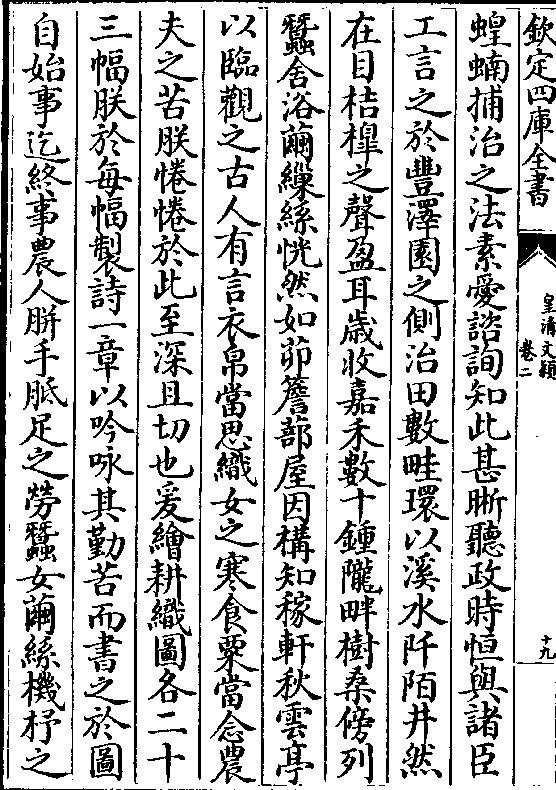 欽定四庫全書
皇清文穎
卷二
十九
蝗蝻捕治之法素愛諮詢知此甚晰聽政時恒與諸臣
工言之於豐澤園之側治田數畦環以溪水阡陌井然
在目桔槹之聲盈耳歲收嘉禾數十鍾隴畔樹桑傍列
蠶舍浴繭繅絲恍然如茆簷蔀屋因構知稼軒秋雲亭
以臨觀之古人有言衣帛當思織女之寒食粟當念農
夫之苦朕惓惓於此至深且切也爰繪耕織圖各二十
三幅朕於每幅製詩一章以吟咏其勤苦而書之於圖
自始事迄終事農人胼手胝足之勞蠶女繭絲機杼之